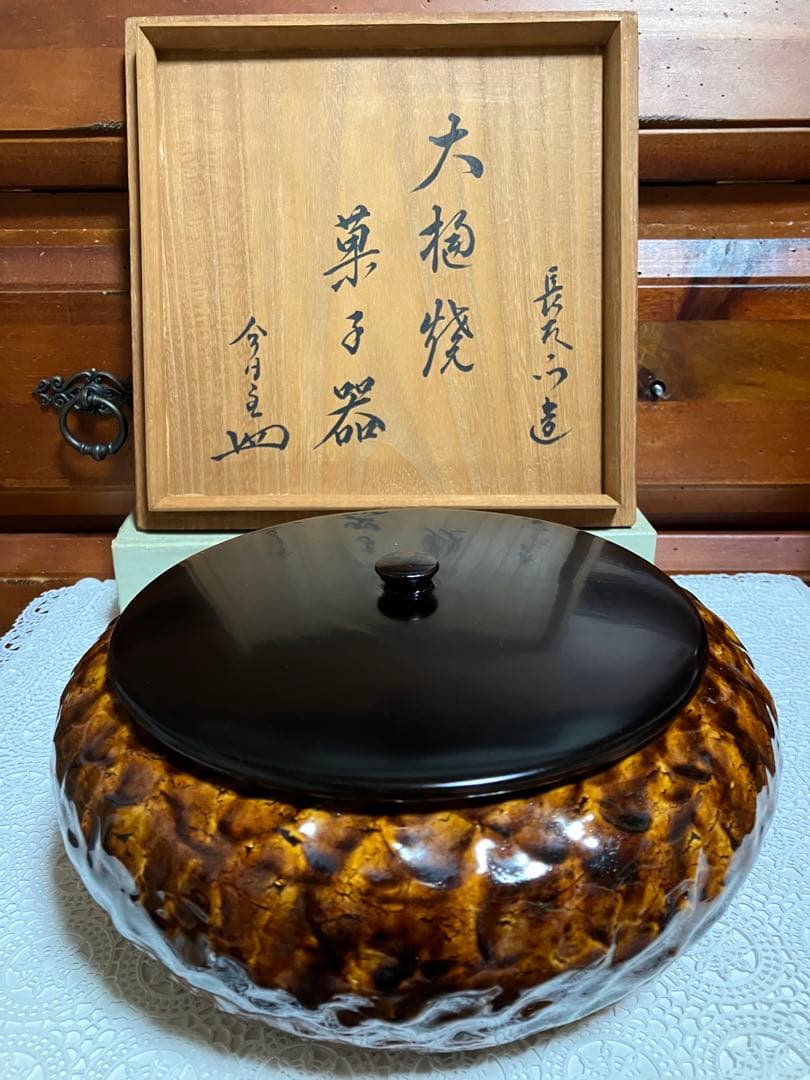 長左ヱ門造
大樋焼
菓子器
今日主